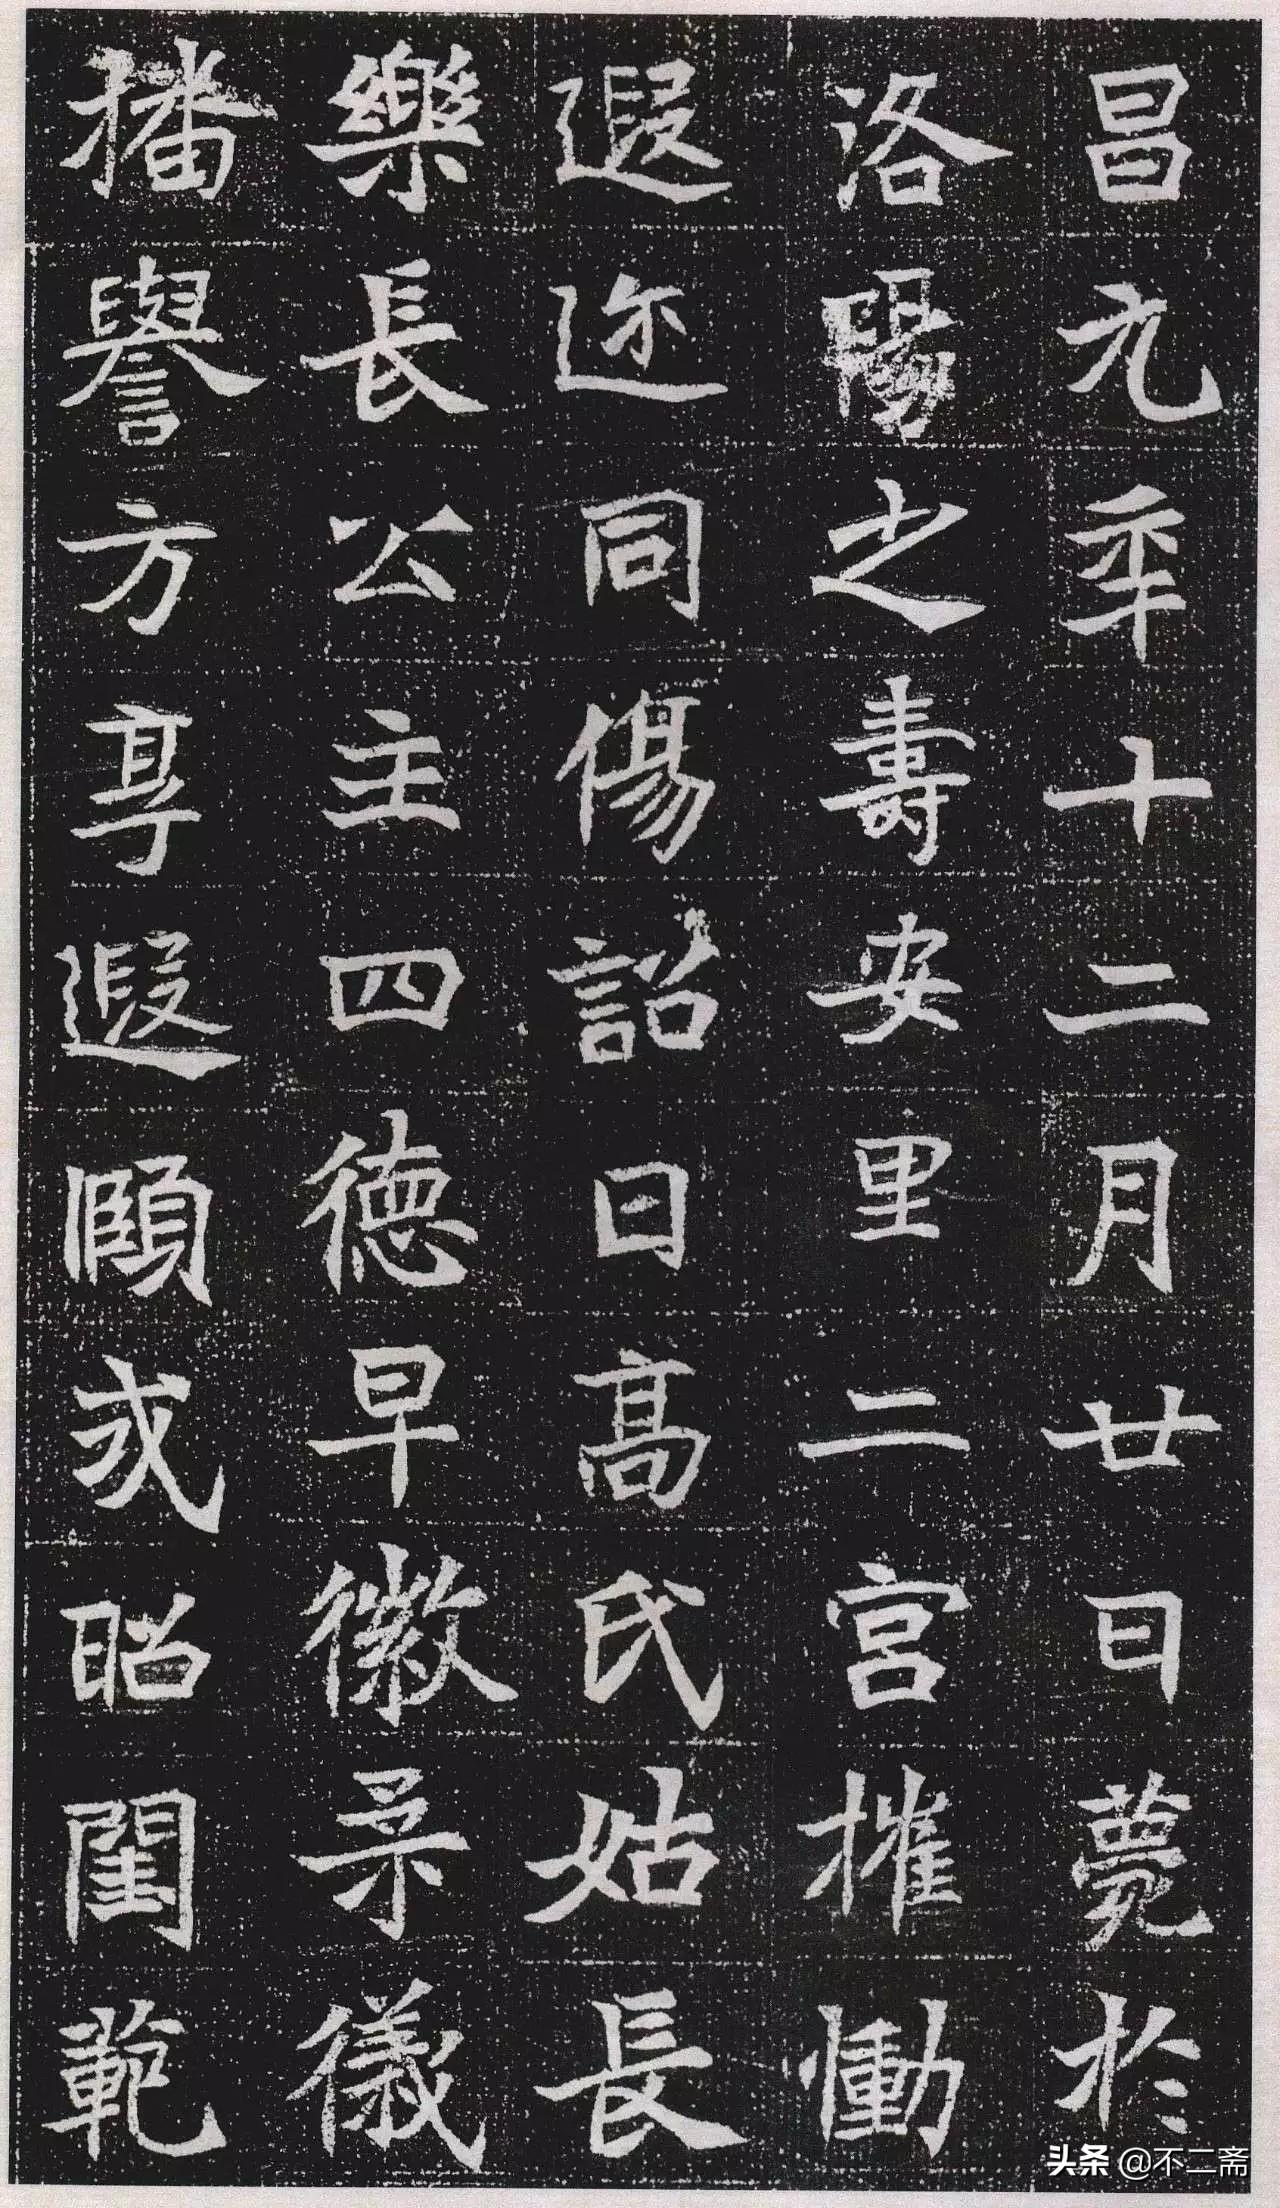 昌元年十二月廿日薨於
洛陽之壽安里二宮摧慟
遐迩同傷詔曰高氏姑長
樂長公主四德早徽柔儀
播譽方享遐頤式昭閨範
头条 @不二斋